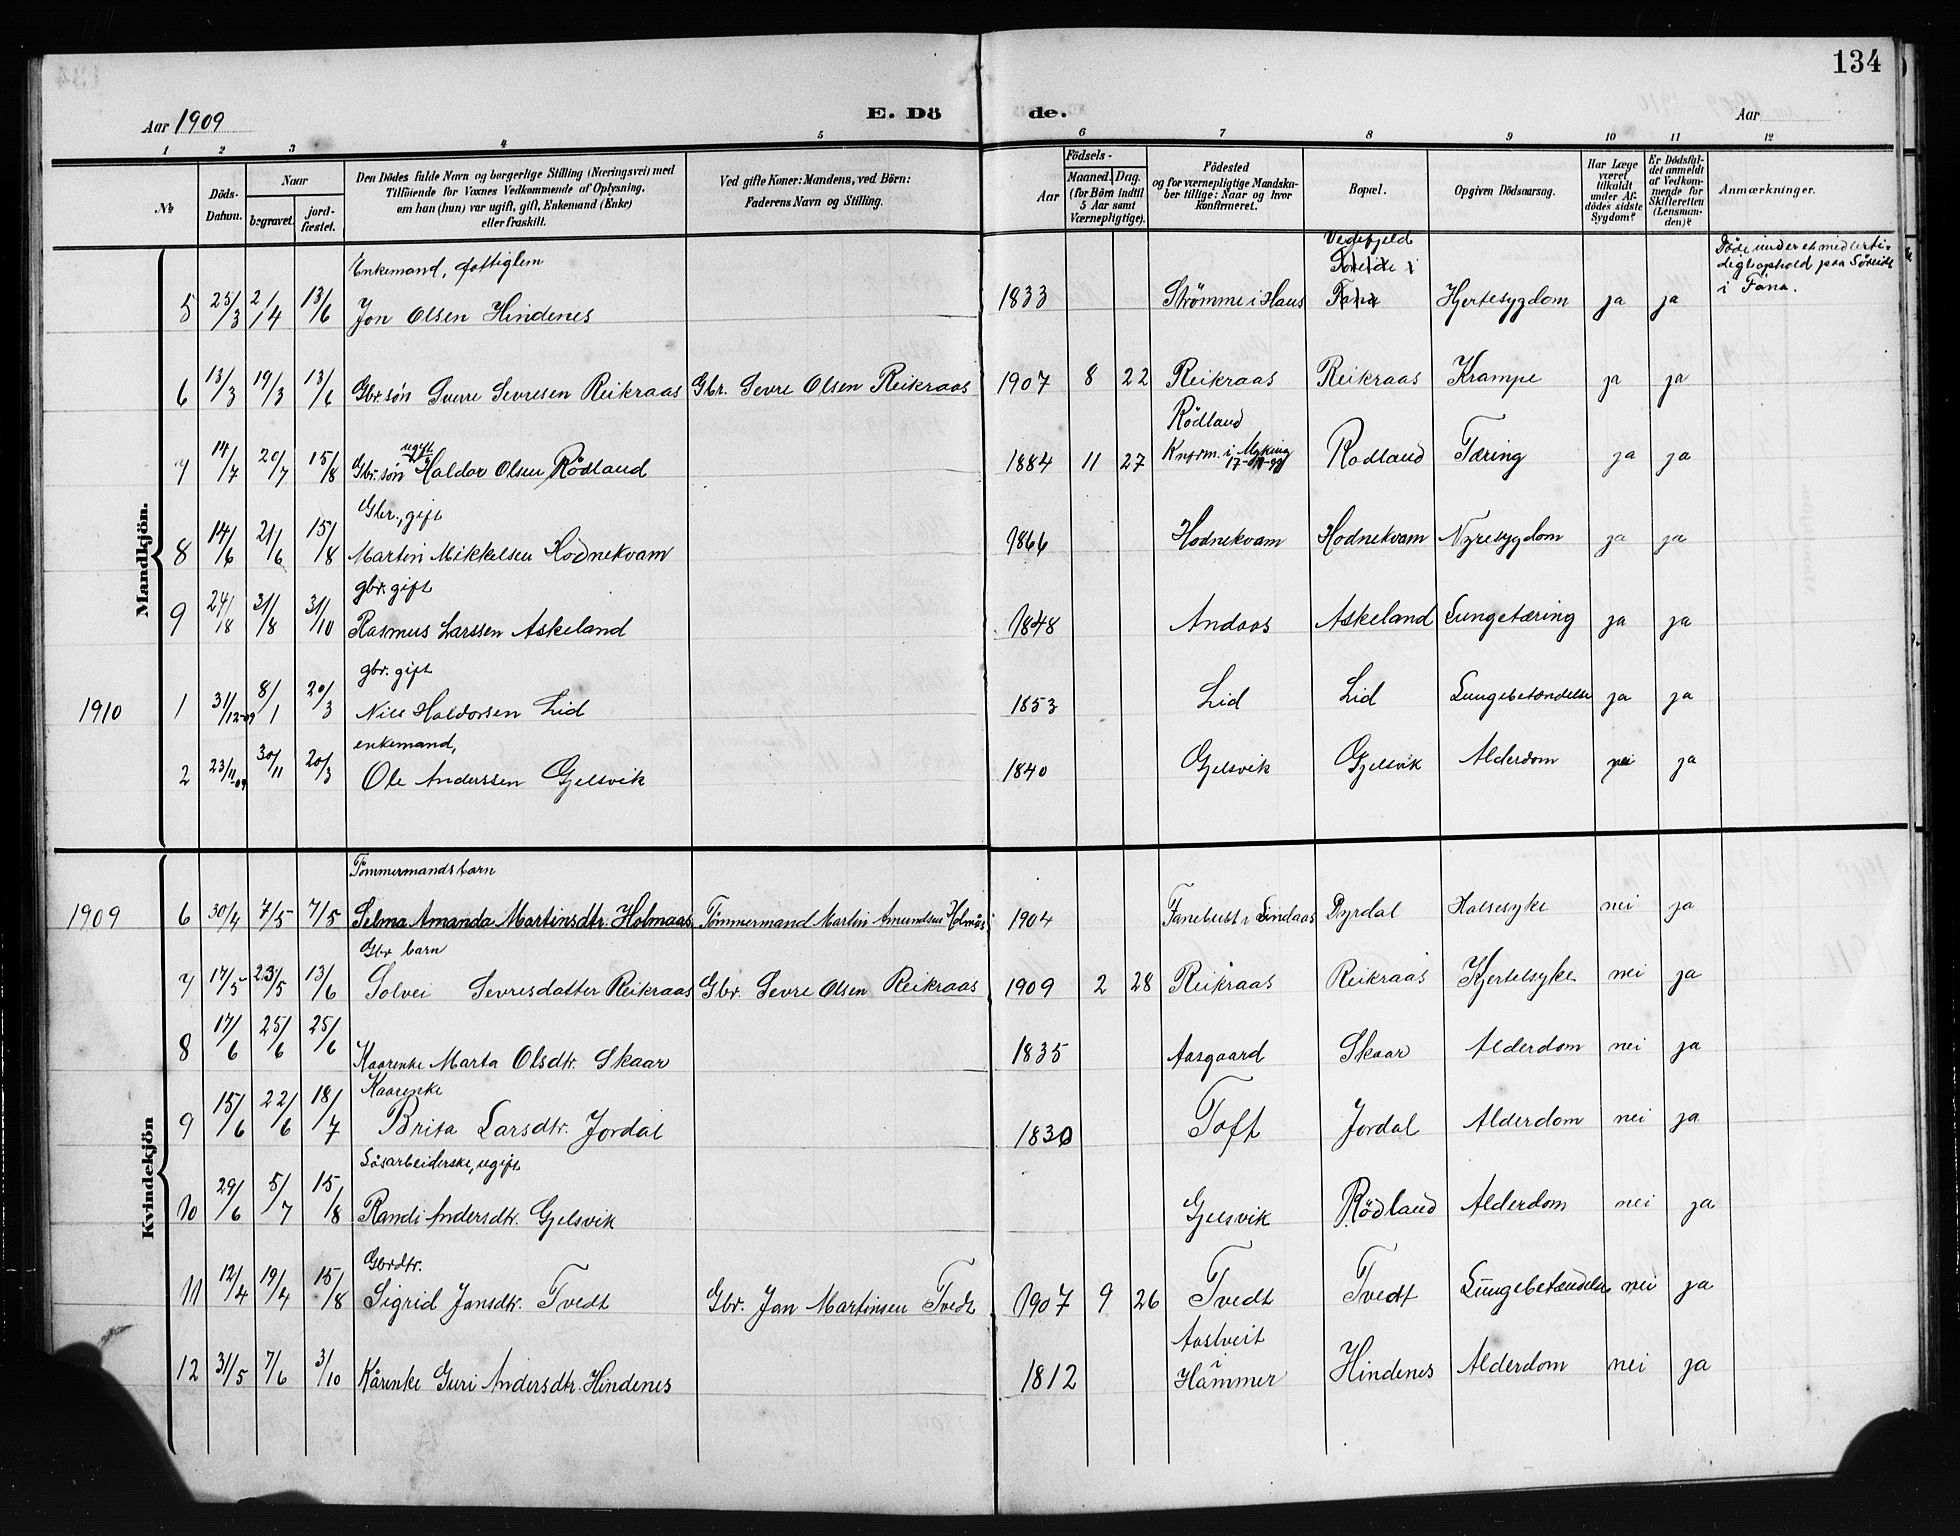 134
Aar 1909 E. Dö de. Aar
1 2 3 4 5 6 7 8 9 10 11 12
№
Döds-Datum.
Naar
begravet.
jord-fæstet.
Den Dödes fulde Navn og borgerlige Stilling (Næringsvei) med
Tilföiende for Voxnes Vedkommende af Oplysning,
om han (hun) var ugift, gift, Enkemand (Enke)
eller fraskilt.
Ved gifte Koner: Mandens, ved Börn:
Faderens Navn og Stilling.
Födsels-
Aar
Maaned. Dag.
(for Börn indtil
5 Aar samt
Værnepligtige).
Födested
og for værnepligtige Mandska-
ber tillige: Naar og hvor
konfirmeret.
Bopæl.
Opgiven Dödsaarsag.
Har Læge
været
tilkaldt
under Af-
dödes sidste
Sygdom?
Er Dödsfal-
det anmeldt
af Vedkom-
mende for
Skifteretten
(Lensman-
den)?
Anmærkninger.
Mandkjön.
Enkemand, fattiglem Vedefjeld Døde under et midlerti-
digt ophold paa Søreide
i Fana.
5 25/3 2/4 13/6 Jon Olsen Hindenes 1833 Strømme i Haus Hjertesygdom ja ja
6 13/3 19/3 13/6 Gbr.søn Sverre Sevresen Reikraas Gbr. Sevre Olsen Reikraas 1907 8 22 Reikraas Reikraas Krampe ja ja
ugift Rödland
7 14/7 20/7 15/8 Gbr.søn Haldor Olsen Rödland 1884 11 27 Knfrm. i Myking Rodland Tæring ja ja
Gbr., gift
8 14/6 21/6 15/8 Martin Mikkelsen Hodnekvam 1866 Hodnekvam Hodnekvam Nyresygdom ja ja
gbr. gift
9 24/8 31/8 31/10 Rasmus Larssen Askeland 1848 Andaas Askeland Lungetæring ja ja
gbr. gift
1910 1 31/12-09 8/1 20/3 Nils Haldorsen Lid 1853 Lid Lid Lungebetændelse ja ja
enkemand,
2 23/11-09 30/11 20/3 Ole Anderssen Gjelsvik 1840 Gjelsvik Gjelsvik Alderdom nei ja
Kvindekjön
Tömmermandsbarn
1909 6 30/4 7/5 7/5 Selma Amanda Martinsdtr. Holmaas Tömmermand Martin Amundsen Holmås 1904 Fanebust i Lindaas Dyrdal Halsesyke nei ja
Gbr barn
7 17/5 23/5 13/6 Solvei Sevresdatter Reikraas Gbr. Sevre Olsen Reikraas 1909 2 28 Reikraas Reikraas Kjertelsyke nei ja
8 17/6 25/6 25/6 Kaarenke Marta Olsdtr. Skaar 1835 Aasgaard Skaar Alderdom nei ja
Kaarenke
9 15/6 22/6 18/7 Brita Larsdtr. Jordal 1830 Toft Jordal Alderdom nei ja
Løsarbeiderske, ugift
10 29/6 5/7 15/8 Randi Andersdtr. Gjelsvik Gjelsvik Rödland Alderdom nei ja
Gbrdtr.
11 12/4 19/4 15/8 Sigrid Jansdtr. Tvedt Gbr. Jan Martinsen Tvedt 1907 9 26 Tvedt Tvedt Lungebetændelse nei ja
Aastveit
i
12 31/5 7/6 3/10 Kårenke Guri Andersdtr. Hindenes 1812 Hammer Hindenes Alderdom nei ja